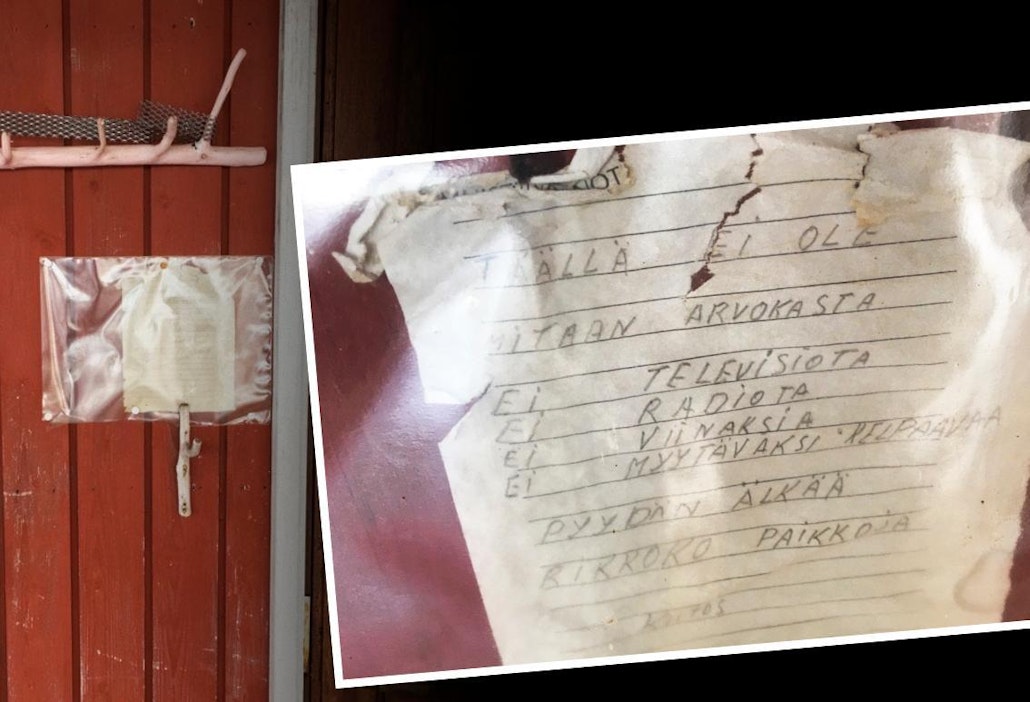 TÄÄLLÄ EI OLE
MITÄÄN ARVOKASTA
EI TELEVISIOTA
EI RADIOTA
EI VIINAKSIA
EI MYYTÄVÄKSI KELPAAVAA
PYYDÄN ÄLKÄÄ
RIKKOKO PAIKKOJA
KIITOS